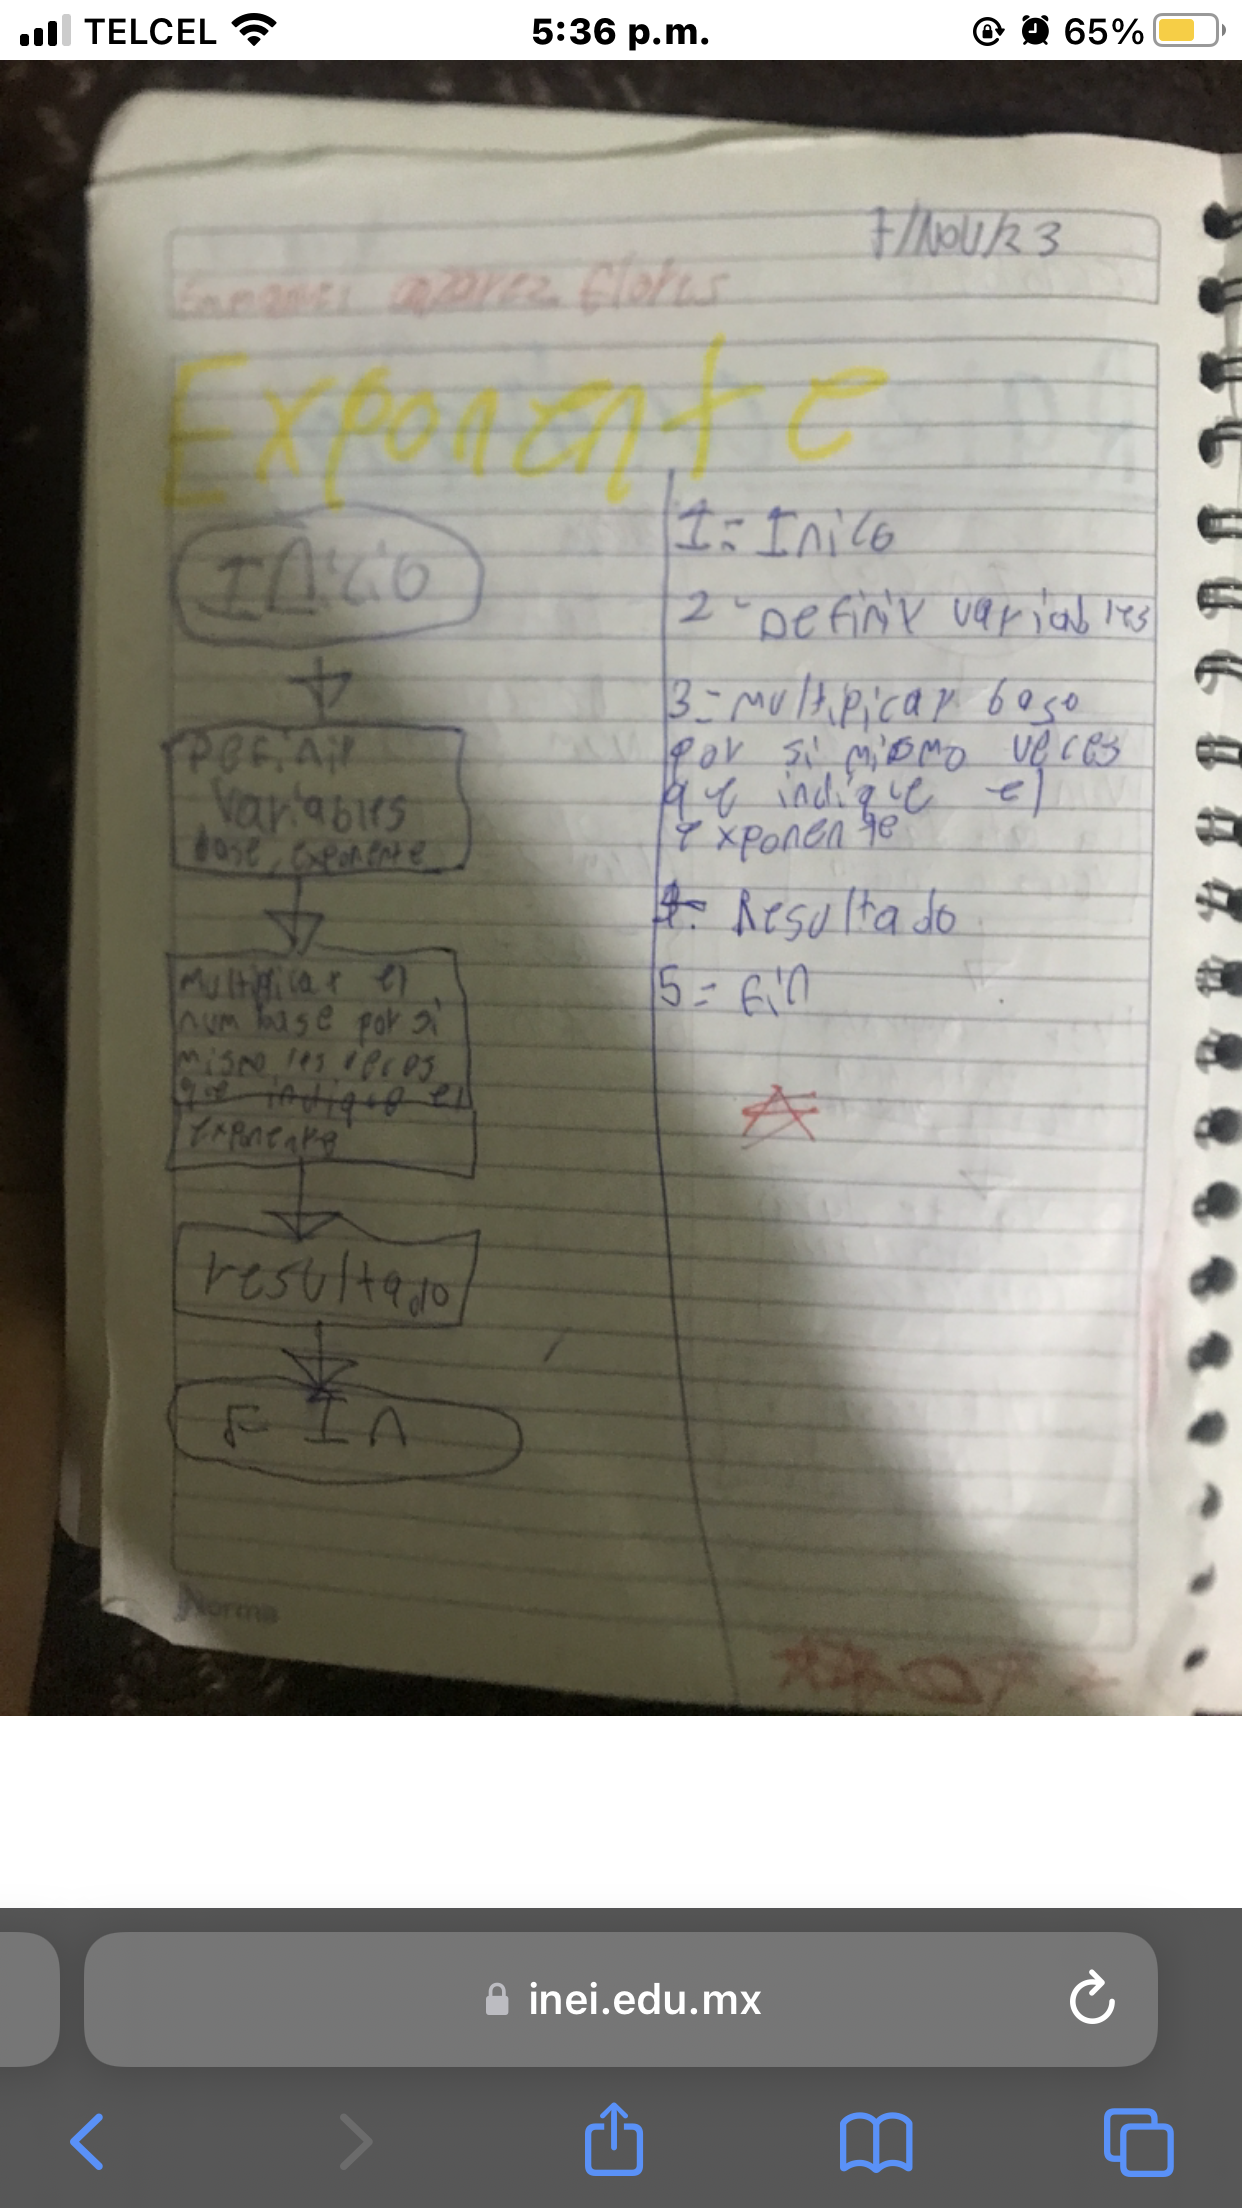 TELCEL
5:36 p.m.
65%
7/NOV/23
Flores
Exponente
Inicio
Definir
variables
base, exponente
Multiplicar el
num base por si
mismo les veces
que indique el
exponente
resultado
FIn
1= Inico
2- Definir variables
3- multipicar base
por si mismo veces
que indique el
exponente
4- Resultado
5= Fin
Norma
inei.edu.mx